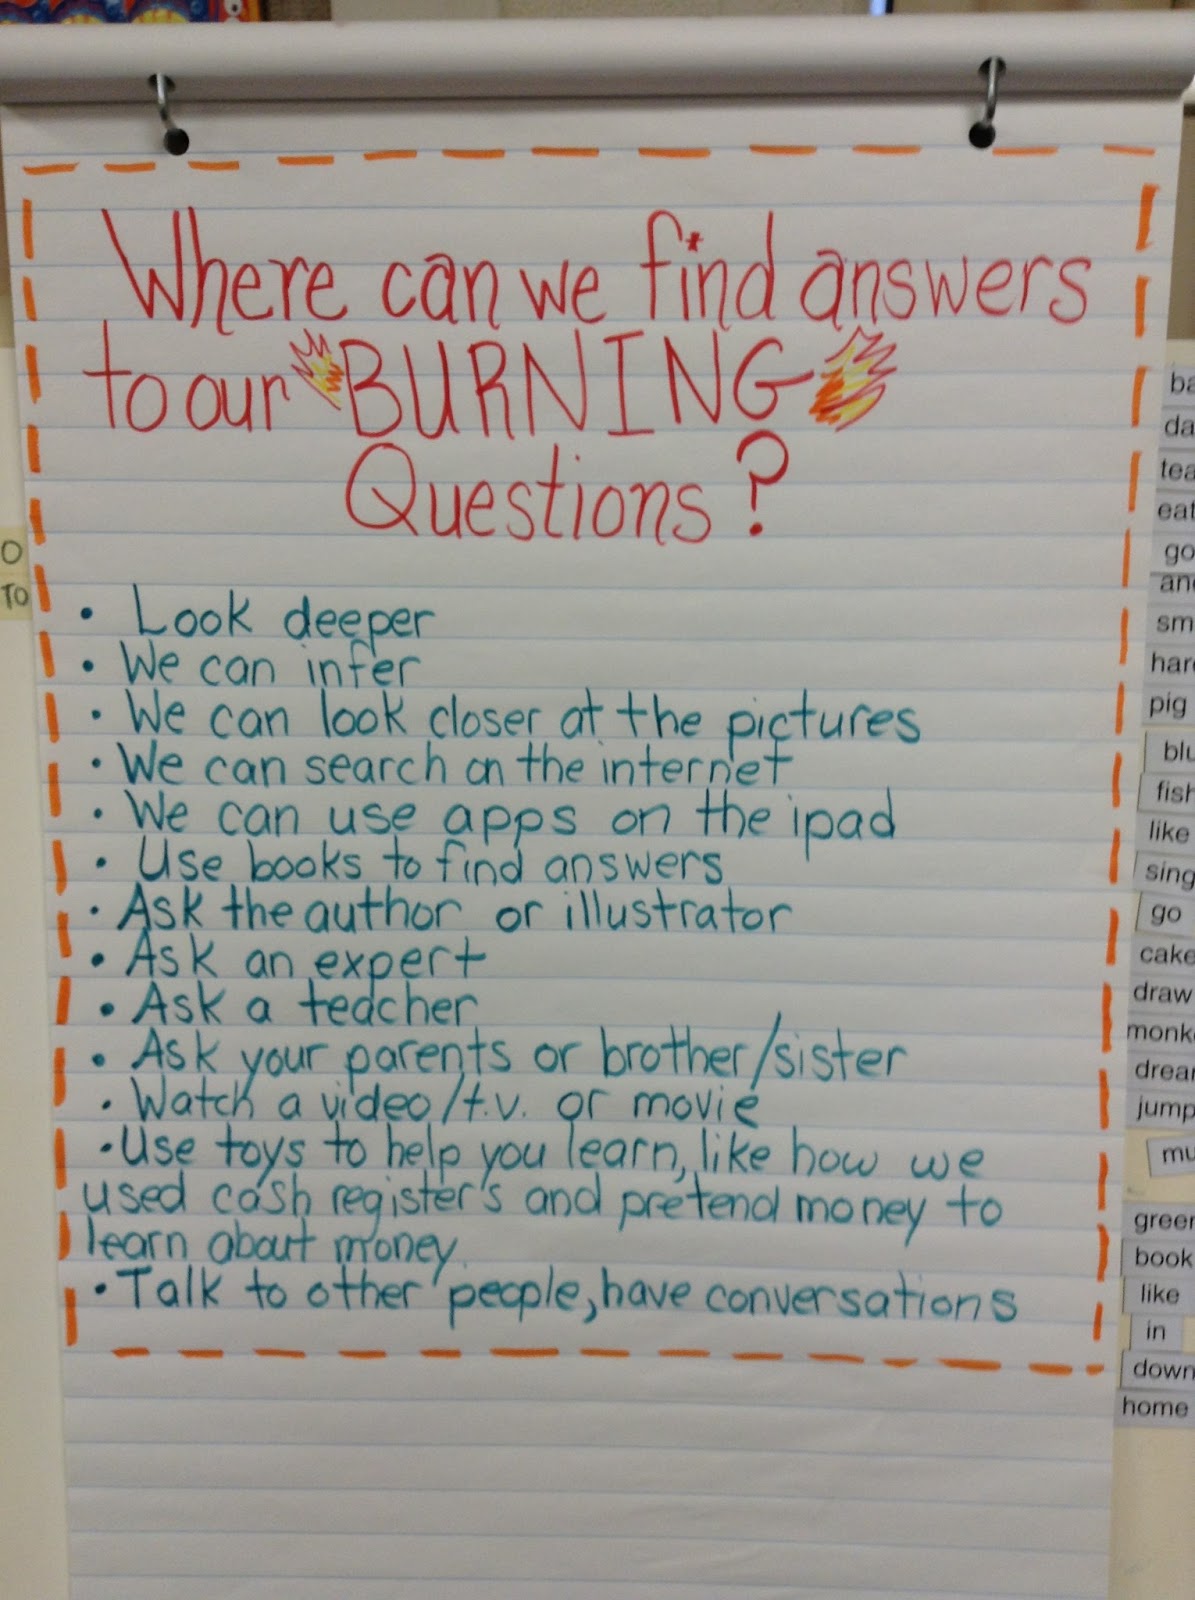 Where can we find answers
to our BURNING
Questions?
• Look deeper
• We can infer
• We can look closer at the pictures
• We can search on the internet
• We can use apps on the ipad
• Use books to find answers
• Ask the author or illustrator
• Ask an expert
• Ask a teacher
• Ask your parents or brother/sister
• Watch a video/t.v. or movie
• Use toys to help you learn, like how we
used cash register's and pretend money to
learn about money.
• Talk to other people, have conversations
O
TO
eat
go
pig
like
go
in
like
home